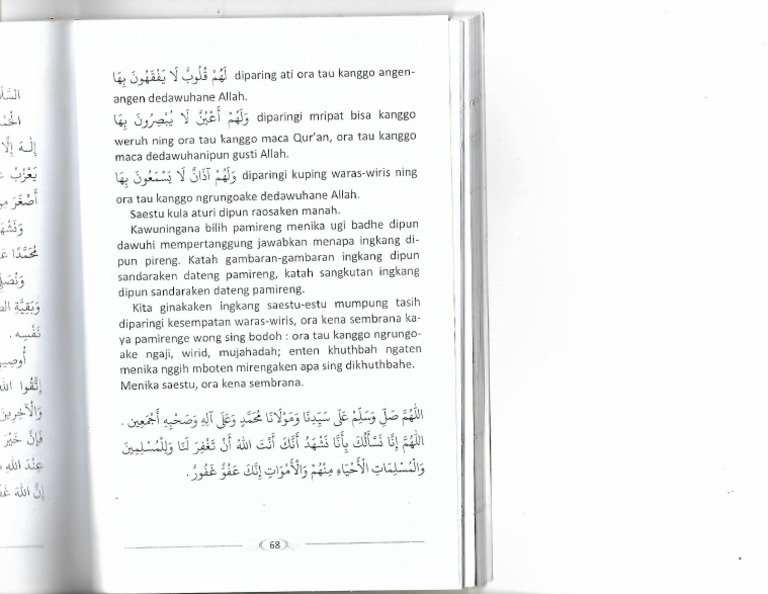 لَهُمْ قُلُوبٌ لَا يَفْقَهُونَ بِهَا diparing ati ora tau kanggo angen-
angen dedawuhane Allah.
وَلَهُمْ أَعْيُنٌ لَا يُبْصِرُونَ بِهَا diparingi mripat bisa kanggo
weruh ning ora tau kanggo maca Qur'an, ora tau kanggo
maca dedawuhanipun gusti Allah.
وَلَهُمْ آذَانٌ لَا يَسْمَعُونَ بِهَا diparingi kuping waras-wiris ning
ora tau kanggo ngrungoake dedawuhane Allah.
Saestu kula aturi dipun raosaken manah.
Kawuningana bilih pamireng menika ugi badhe dipun
dawuhi mempertanggung jawabkan menapa ingkang di-
pun pireng. Katah gambaran-gambaran ingkang dipun
sandaraken dateng pamireng, katah sangkutan ingkang
dipun sandaraken dateng pamireng.
Kita ginakaken ingkang saestu-estu mumpung tasih
diparingi kesempatan waras-wiris, ora kena sembrana ka-
ya pamirenge wong sing bodoh : ora tau kanggo ngrungo-
ake ngaji, wirid, mujahadah; enten khuthbah ngaten
menika nggih mboten mirengaken apa sing dikhuthbahe.
Menika saestu, ora kena sembrana.
اللهُمَّ صَلِّ وَسَلِّمْ عَلَى سَيِّدِنَا وَمَوْلَانَا مُحَمَّدٍ وَعَلَى آلِهِ وَصَحْبِهِ أَجْمَعِين .
اللهُمَّ إِنَّا نَسْأَلُكَ بِأَنَّا نَشْهَدُ أَنَّكَ أَنْتَ اللهُ أَنْ تَغْفِرَ لَنَا وَلِلْمُسْلِمِينَ
وَالْمُسْلِمَاتِ الْأَحْيَاءِ مِنْهُمْ وَالْأَمْوَاتِ إِنَّكَ عَفُوٌّ غَفُورٌ .
68